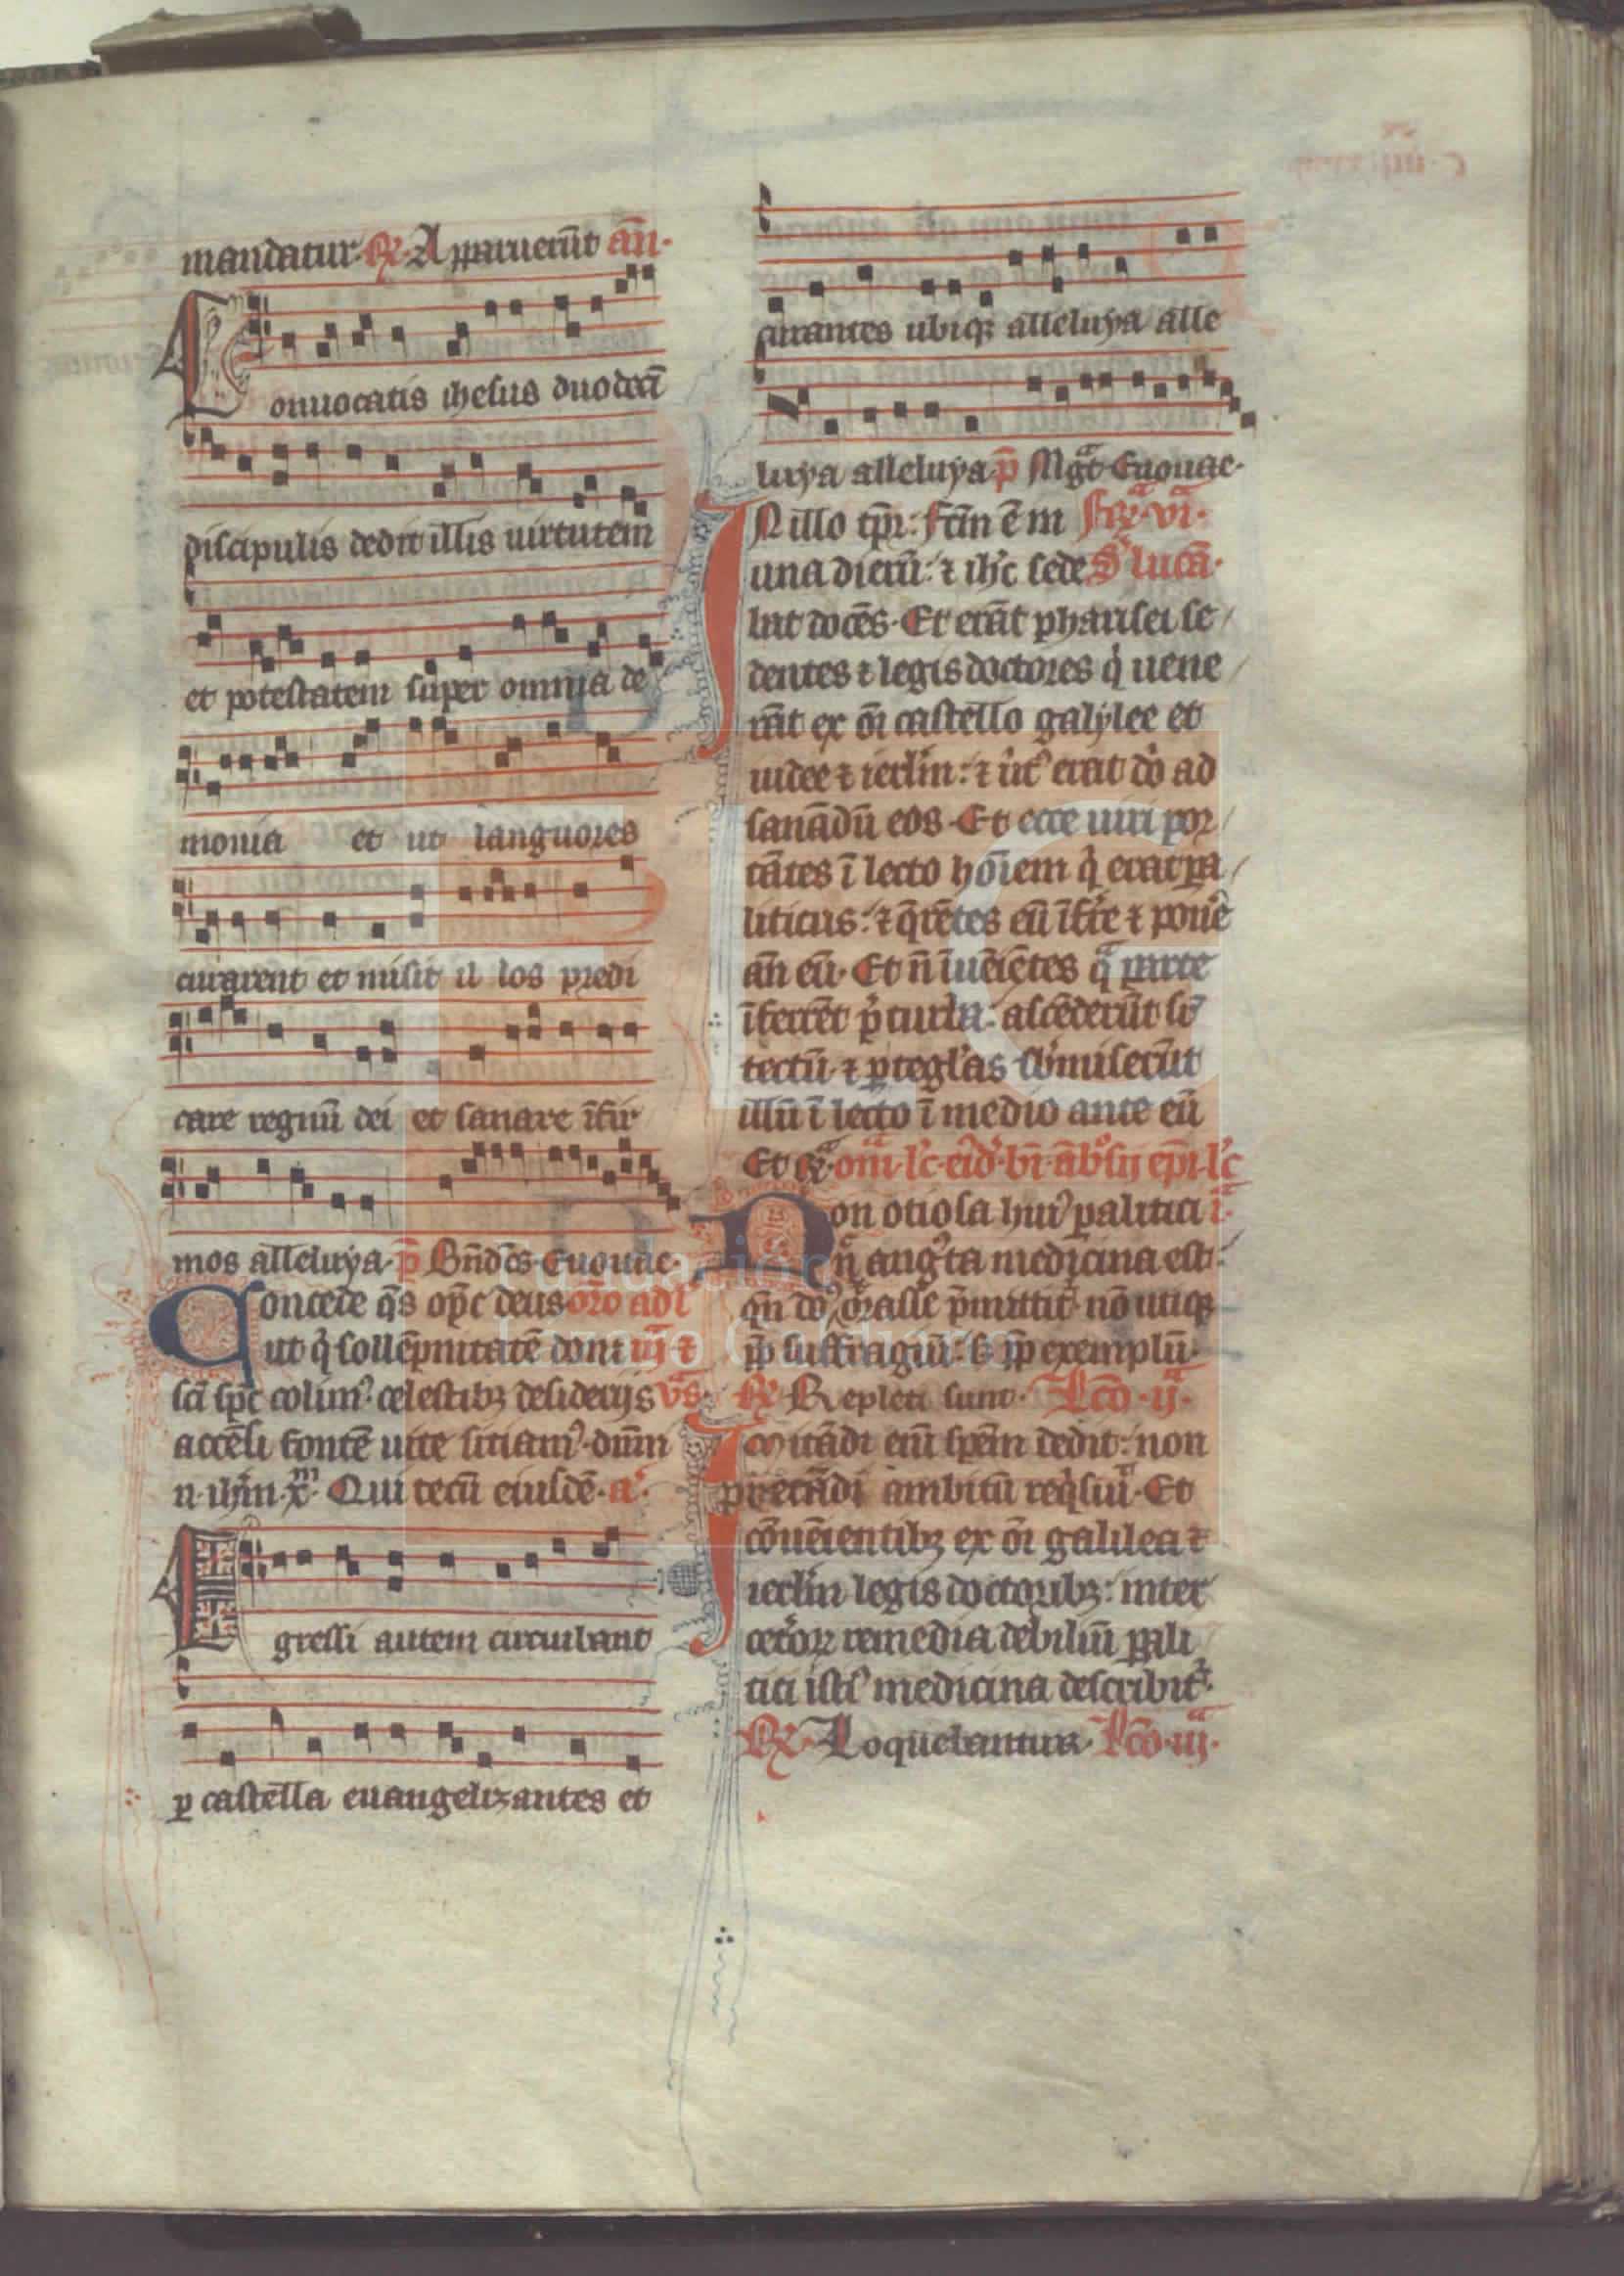 mandatur. R̃. Apparuerũt añ.
Conuocatis ihesus duodecĩ
discipulis dedit illis uirtutem
et potestatem super omnia de
monia et ut languores
curarent et misit il los predi
care regnũ dei et sanare ĩfir
mos alleluya. p̃ Bñdc̃s. Euouae.
Concede q̃s op̃c deus or̃o ad l'
ut q̇ sollẽpnitatẽ doni iij ⁊
sc̃i sp̃c colim⁹. celestibꝫ desiderijs v̄s.
accẽsi fontẽ uite sitiam⁹. dñm
n. ihm̃. xᵐ. Qui tecũ eiusdẽ. a⁹.
Egressi autem circuibant
ꝑ castella euangelizantes et
curantes ubiqꝫ alleluya alle
luya alleluya. p̃ Mg̃t. Euouae.
IN illo tp̃r: fc̃m ẽ in fr̃. vi.
una dierũ: ⁊ ihc̃ sede S' lucã.
bat docẽs. Et erãt pharisei se
dentes ⁊ legis doctores q̇ uene
rãt ex õi castello galylee et
iudee ⁊ ierlm̃: ⁊ ũt⁹ erat dñi ad
sanãdũ eos. Et ecce uiri por
tãtes ĩ lecto hõiem q̇ erat ꝑa
liticus: ⁊ q̃rẽtes eũ ĩfr̃e ⁊ pon̄e
añ eũ. Et ñ ĩuẽiẽtes q̃ parte
ĩferrẽt p̃ turba: ascẽderũt sr̃
tectũ. ⁊ ꝑ tegl'as sb̃miserũt
illũ ĩ lecto ĩ medio ante eũ
Et r̃. om̃. l'c. eid̃. bĩ. ãb'sij ep̃i. l'c
Non otiosa hui⁹ ꝑalitici i.
ñ ang'ta medicina est:
qñ dñ⁹ orasse p̃mittit'. nõ utiqꝫ
ꝓp̃ suffragiũ: s; ꝓp̃ exemplũ.
R̃. Repleti sunt. Lc̃o. ij.
Imitãdi eni sp̃em dedit: non
p̃cãdi ambitũ req̇siuit. Et
cõuẽientibꝫ ex õi galilea ⁊
ierlm̃ legis doctoribꝫ: inter
cet'oꝝ remedia debiliũ ꝑali
tici isti⁹ medicina describit'.
R̃. Loquebantur. Lc̃o. iij.